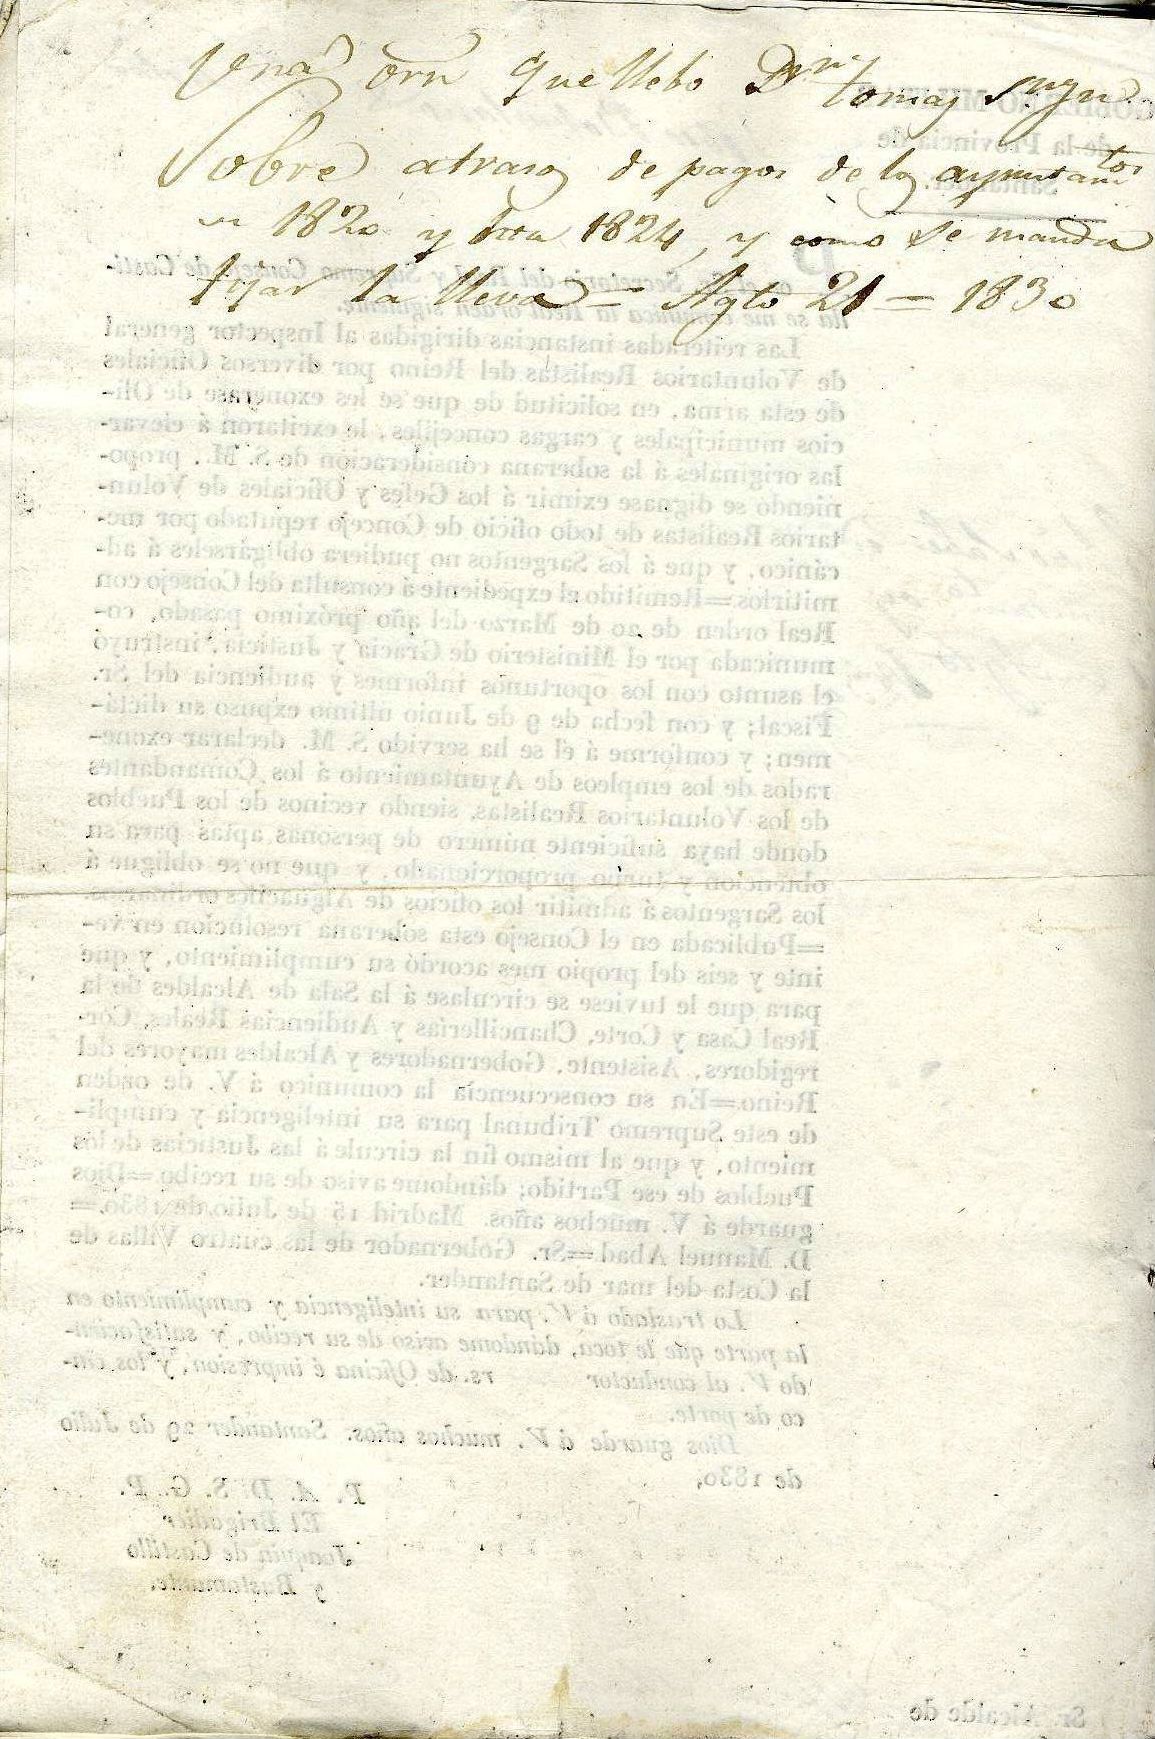 Una orn que llebo Dn tomas
Sobre atraso de pagos de los ayuntamtos
en 1820 y 1824, y como se manda
fijar la lleva = Agto 21 = 1830
GOBIERNO MILITAR
de la Provincia de
Santander.
Por el Sr. Secretario del Rl y Supremo Consejo de Casti-
lla se me comunica la Real orden siguiente.
Las reiteradas instancias dirigidas al Inspector general
de Voluntarios Realistas del Reino por diversos Oficiales
de esta arma, en solicitud de que se les exonerase de Ofi-
cios municipales y cargas concejiles, le excitaron á elevar-
las originales á la soberana consideracion de S. M., propo-
niendo se dignase eximir á los Gefes y Oficiales de Volun-
tarios Realistas de todo oficio de Concejo reputado por me-
cánico, y que á los Sargentos no pudiera obligárseles á ad-
mitirlos.=Remitido el expediente á consulta del Consejo con
Real orden de 20 de Marzo del año próximo pasado, co-
municada por el Ministerio de Gracia y Justicia, instruyó
el asunto con los oportunos informes y audiencia del Sr.
Fiscal; y con fecha de 9 de Junio último expuso su dictá-
men; y conforme á él se ha servido S. M. declarar exone-
rados de los empleos de Ayuntamiento á los Comandantes
de los Voluntarios Realistas, siendo vecinos de los Pueblos
donde haya suficiente número de personas aptas para su
obtencion y turno proporcionado, y que no se obligue á
los Sargentos á admitir los oficios de Alguaciles ordinarios.
=Publicada en el Consejo esta soberana resolucion en ve-
inte y seis del propio mes acordó su cumplimiento, y que
para que le tuviese se circulase á la Sala de Alcaldes de la
Real Casa y Corte, Chancillerías y Audiencias Reales, Cor-
regidores, Asistente, Gobernadores y Alcaldes mayores del
Reino.=En su consecuencia la comunico á V. de orden
de este Supremo Tribunal para su inteligencia y cumpli-
miento, y que al mismo fin la circule á las Justicias de los
Pueblos de ese Partido; dándome aviso de su recibo.=Dios
guarde á V. muchos años. Madrid 15 de Julio de 1830.=
D. Manuel Abad.=Sr. Gobernador de las cuatro Villas de
la Costa del mar de Santander.
Lo traslado á V. para su inteligencia y cumplimiento en
la parte que le toca, dándome aviso de su recibo, y satisfacien-
do V. al conductor rs. de Oficina é impresion, y los cin-
co de porte.
Dios guarde á V. muchos años. Santander 29 de Julio
de 1830.
P. A. D. S. G. P.
El Brigadier
Joaquin de Castillo
y Bustamante.
Sr. Alcalde de